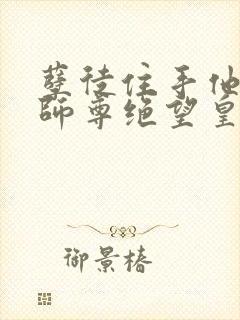 孽徒住手他
师尊绝望皇
御景椿